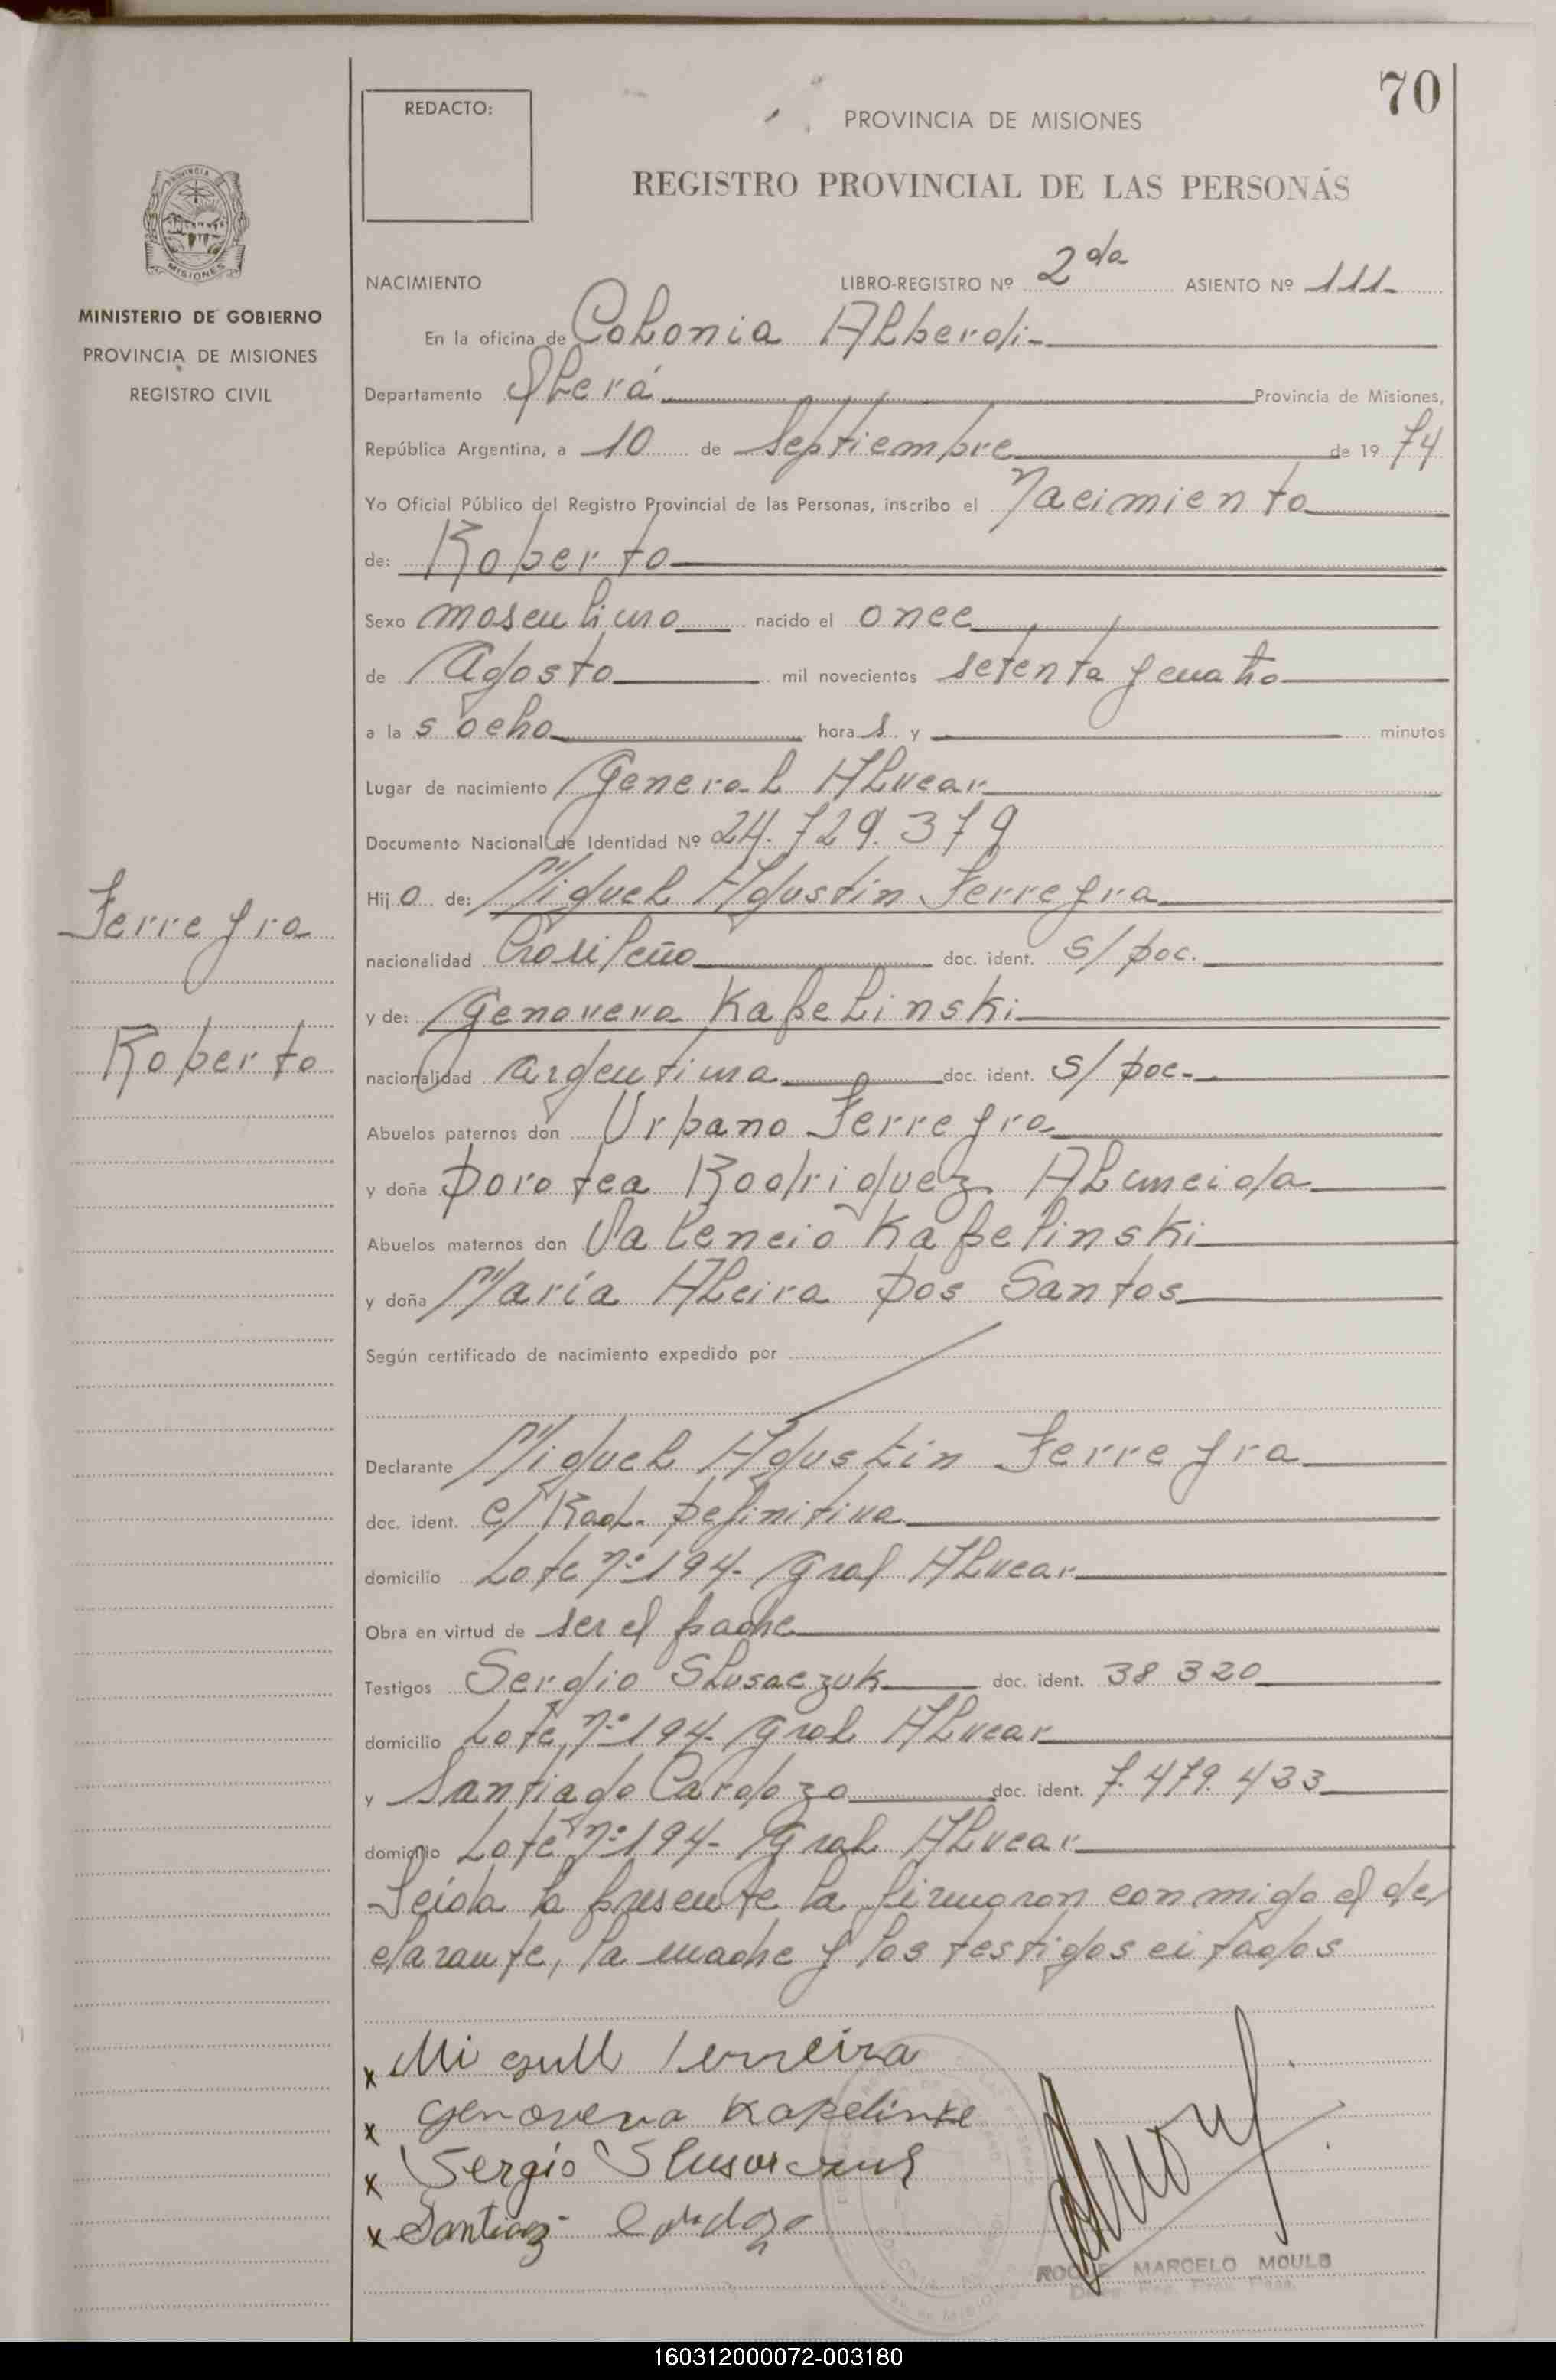 70
REDACTO:
PROVINCIA DE MISIONES
REGISTRO PROVINCIAL DE LAS PERSONAS
PROVINCIA
MISIONES
MINISTERIO DE GOBIERNO
PROVINCIA DE MISIONES
REGISTRO CIVIL
NACIMIENTO LIBRO-REGISTRO Nº 2da ASIENTO Nº 111-
En la oficina de Colonia Alberdi-
Departamento Oberá Provincia de Misiones,
República Argentina, a 10 de Septiembre de 19 74
Yo Oficial Público del Registro Provincial de las Personas, inscribo el Nacimiento
de: Roberto
Sexo masculino nacido el once
de Agosto mil novecientos setenta y cuatro
a las ocho horas y minutos
Lugar de nacimiento General Alvear
Documento Nacional de Identidad Nº 24.729.379
Hijo de: Miguel Agustín Ferreyra
nacionalidad brasileño doc. ident. s/Doc.
y de: Genoveva Kapelinski
nacionalidad argentina doc. ident. s/Doc-
Abuelos paternos don Urbano Ferreyra
y doña Dorotea Rodriguez Almeida
Abuelos maternos don Valencio Kapelinski
y doña María Alcira Dos Santos
Según certificado de nacimiento expedido por
Declarante Miguel Agustín Ferreyra
doc. ident. c/ Rad. Definitiva
domicilio Lote Nº 194- Gral Alvear
Obra en virtud de ser el padre
Testigos Sergio Slusaczuk doc. ident. 38 320
domicilio Lote Nº 194- Gral Alvear
y Santiago Cardozo doc. ident. 7.479.433
domicilio Lote Nº 194- Gral Alvear
Leída la presente la firmaron conmigo el de
clarante, la madre y los testigos citados
Ferreyra
Roberto
x Miguell Ferreira
x Genoveva Kapelinske
x Sergio
x Cardozo
ROQUE MARCELO MOULB
160312000072-003180